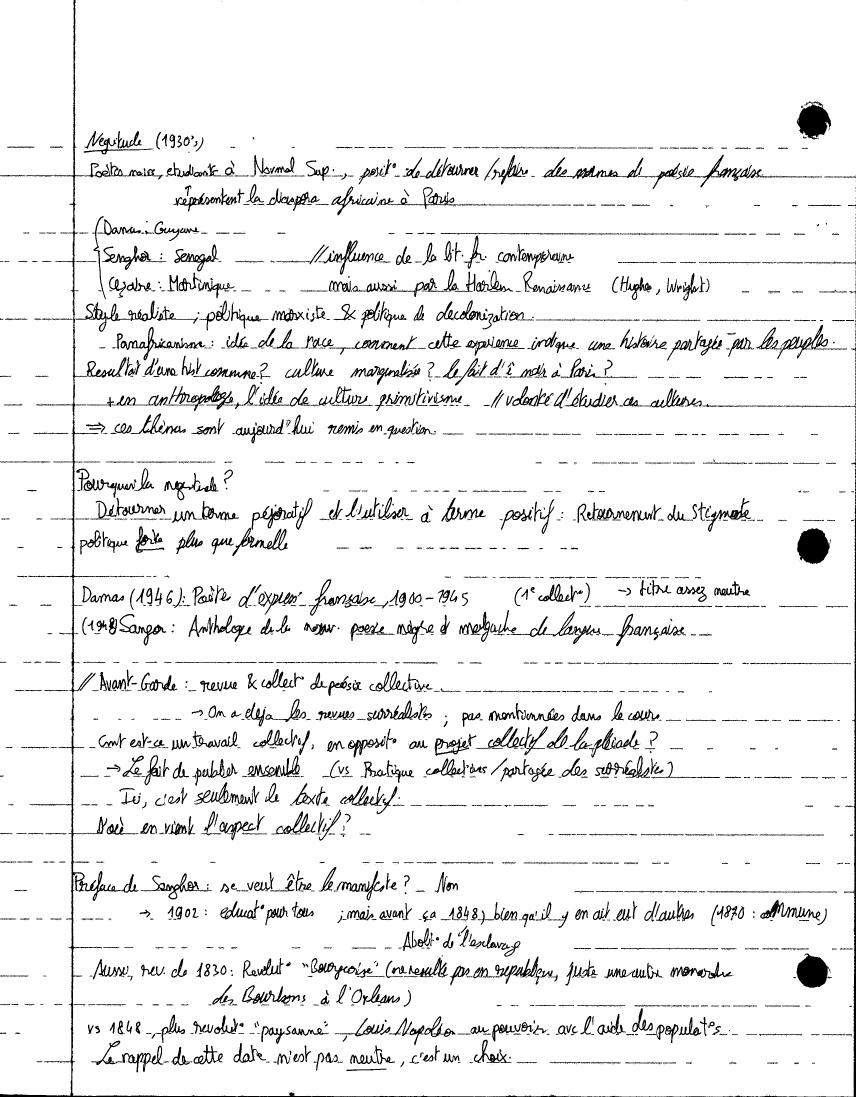 Negritude (1930's)
Poètes noirs, etudiants à Normal Sup., posit° de détourner /refaire des normes de poésie française
représentent la diaspora africaine à Paris
Damas : Guyane
Senghor : Senegal // influence de la litt. fr. contemporaine
Cezaire : Martinique mais aussi par la Harlem Renaissance (Hughes, Wright)
Style réaliste ; politique marxiste & politique de decolonization.
- Panafricanisme : idée de la race, comment cette experience indique une histoire partagée par les peuples.
Resultat d'une hist commune ? culture marginalisée ? le fait d'ê noir à Paris ?
+ en anthropologie, l'idée de culture primitivisme // volonté d'étudier ces cultures.
⇒ ces thèmes sont aujourd'hui remis en question.
Pourquoi la negritude ?
Détourner un terme péjoratif et l'utiliser à terme positif : Retournement du Stigmate
politique forte plus que formelle
Damas (1946) : Poète d'express° française, 1900-1945 (1e collect°) → titre assez neutre
(1948) Sangor : Anthologie de la nouv. poesie nègre et malgache de langue française
// Avant-Garde : revue & collect° de poésie collective.
→ On a deja les revues surréalistes ; pas mentionnées dans le cours
Cmt est-ce un travail collectif, en opposit° au projet collectif de la pleiade ?
→ Le fait de publier ensemble (vs Pratique collections /partagée des surréalistes)
Ici, c'est seulement le texte collectif.
D'où en vient l'aspect collectif ?
Préface de Senghor : se veut être le manifeste ? _ Non
→ 1902 : educat° pour tous ; mais avant ça 1848, bien qu'il y en ait eut d'autres (1870 : commune)
Abolit° de l'esclavag
Aussi, rev. de 1830 : Revolut° "Bourgeoise" (ne resulte pas en republique, juste une autre monarchie
des Bourbons à l'Orleans)
vs 1848, plus revolut° "paysanne", Louis Napoléon au pouvoir avc l'aide des populat°s.
Le rappel de cette date n'est pas neutre, c'est un choix.